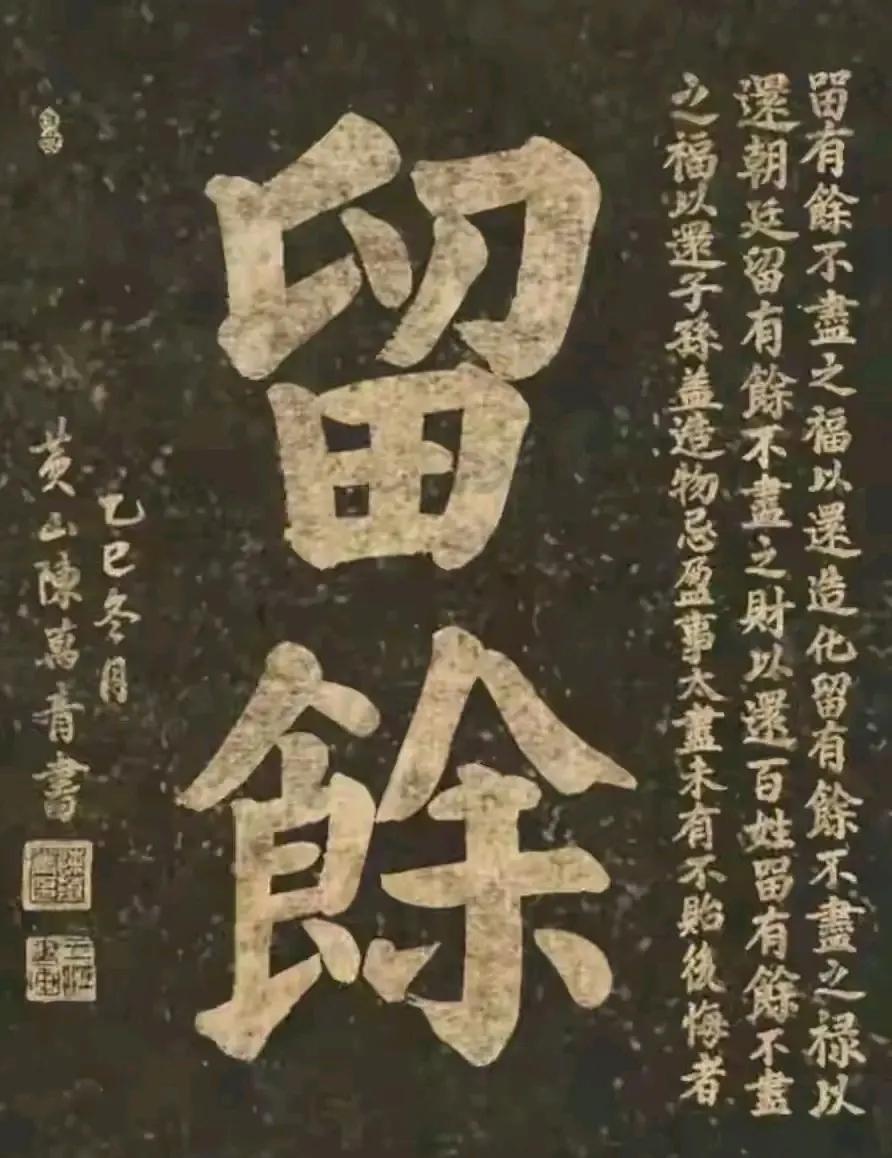 留有餘不盡之福以還造化留有餘不盡之禄以
還朝廷留有餘不盡之財以還百姓留有餘不盡
之福以還子孫盖造物忌盈事太盡未有不貽後悔者
留餘
乙巳冬月
黄山陳萬青書